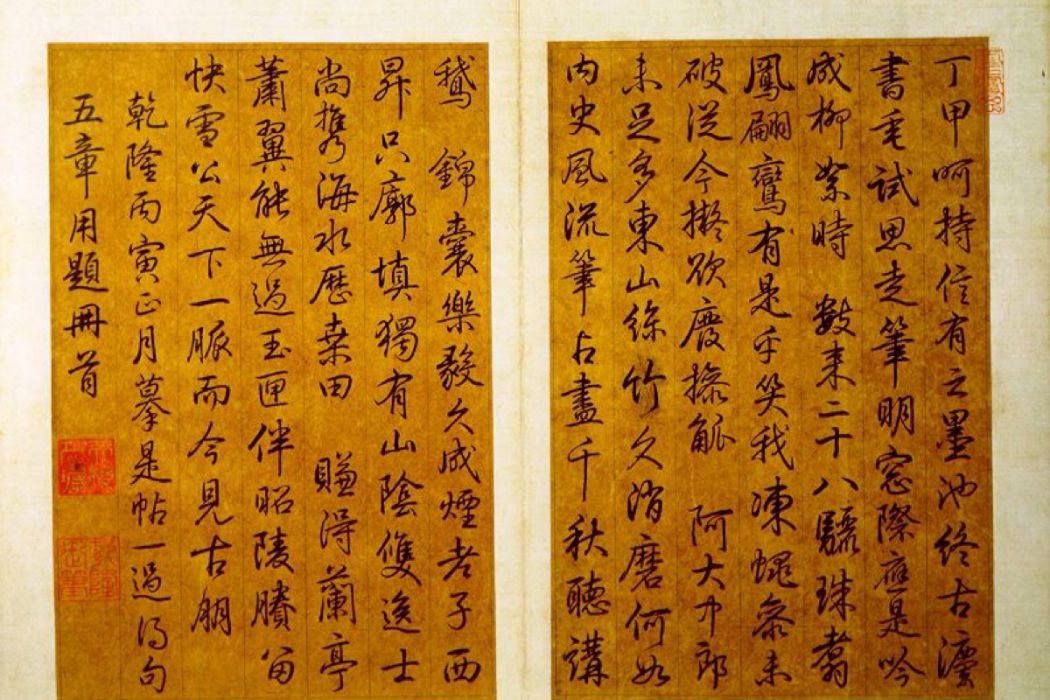 丁甲呵持信有之墨池終古
書試思走筆明窓際應是吟
成柳絮時 數來二十八驪珠翥
鳳翩鸞有是乎笑我凍蠅參未
破從今擬欲廢操觚 阿大中郎
未足多東山絲竹久消磨何如
内史風流筆占盡千秋聽講
鵝 錦囊樂毅久成煙老子西
昇只廓填獨有山陰雙逸士
尚攜海水歷桑田 賺得蘭亭
蕭翼能無過玉匣伴昭陵賸留
快雪公天下一脈而今見古朋
乾隆丙寅正月摹是帖一過得句
五章用題冊首
乾隆御筆